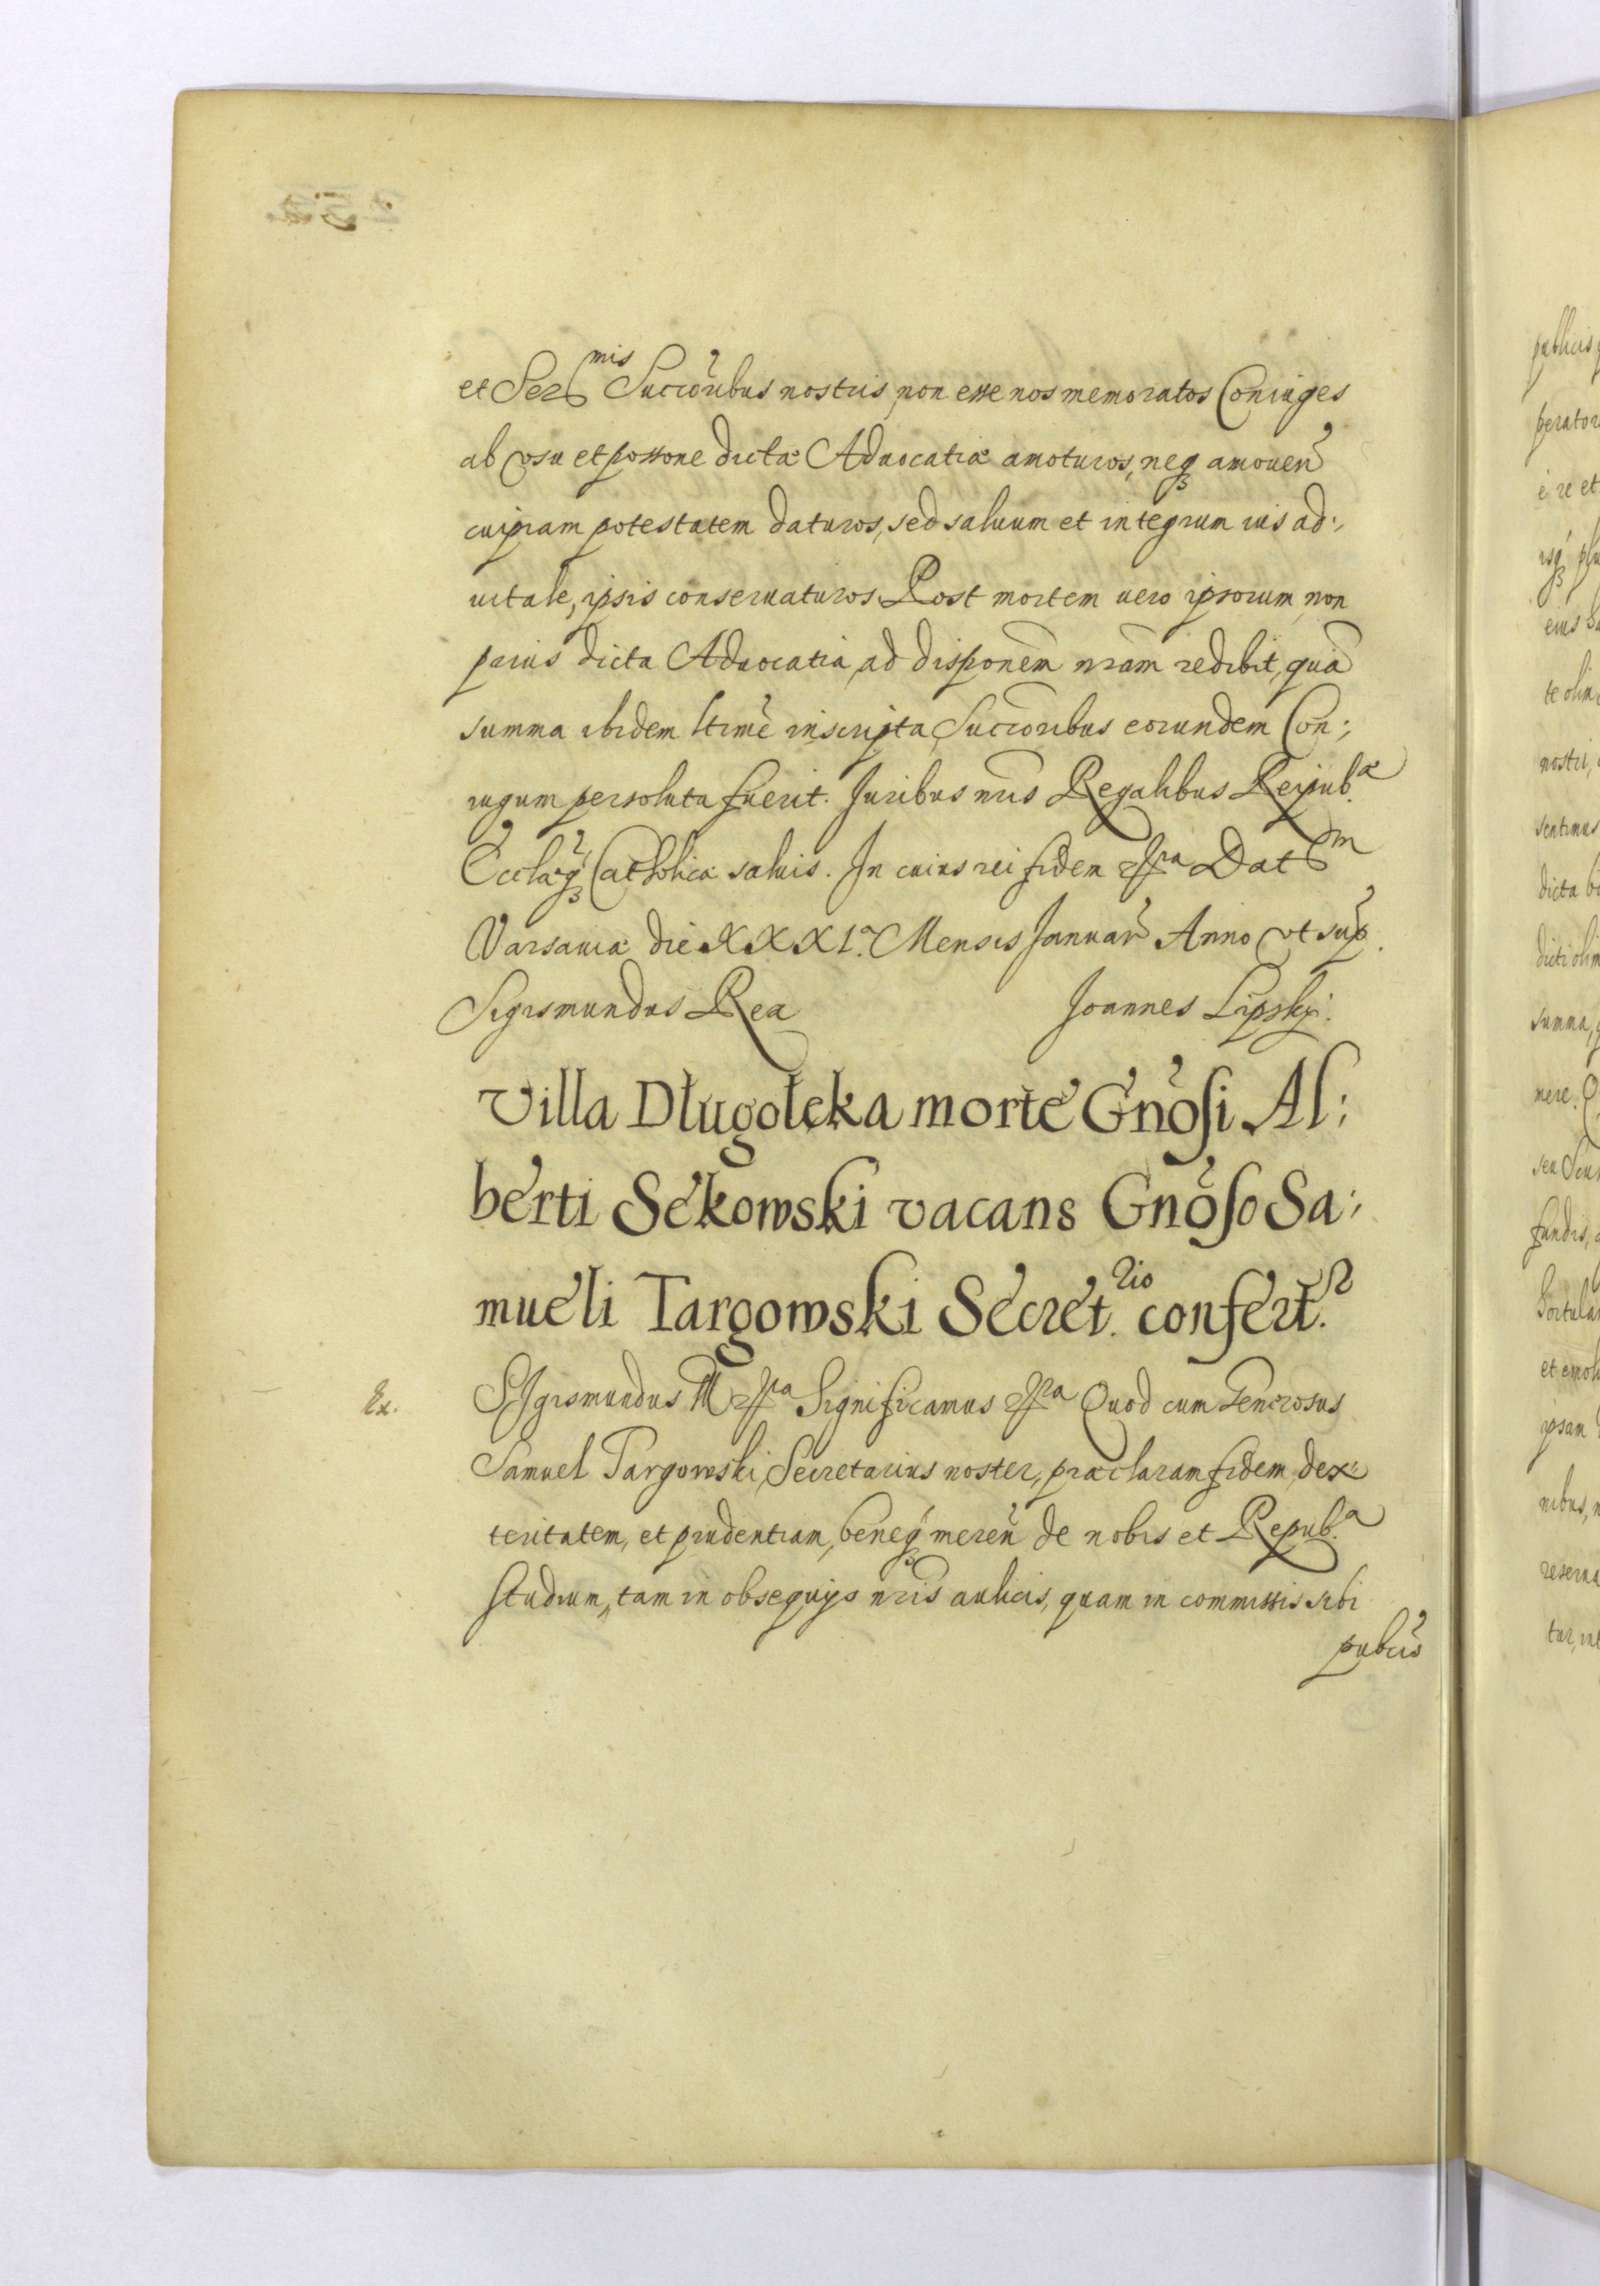 et Ser^mis Succoribus nostris, non esse nos memoratos Coniuges
ab vsu et possone dictæ Aduocatiæ amoturos, neq amouen
cuipiam potestatem daturos, sed saluum et integrum ius ad:,
uitale, ipsis conseruaturos. Post mortem uero ipsorum, non
prius dicta Aduocatia, ad disponem nram redibit, qua
summa ibidem ltime inscripta, Succoribus eorundem Con:,
iugum persoluta fuerit. Juribus nris Regalibus Reipub.æ
Ecclæq Catholicæ saluis. In cuius rei fidem Dat^m
Varsauiæ die XXXI.a Mensis Januar Anno vt sup.
Sigismundus Rex Joannes Lipsky.
Villa Długołęka morte Gnosi Al:
berti Sękowski vacans Gnoso Sa:
mueli Targowski Secret.rio confert.r
Ex. SIgismundus III Significamus Quod cum Generosus
Samuel Targowski, Secretarius noster, præclaram fidem, dex:
teritatem, et prudentiam, beneq meren de nobis et Repub.a
studium, tam in obsequijs nris aulicis, quam in commissis sibi
publis
publicis
nostri,
sentimus
dicta
dicti olim
summa,
nere.
fundis,
et emol
ipsam
nibus,
reserua